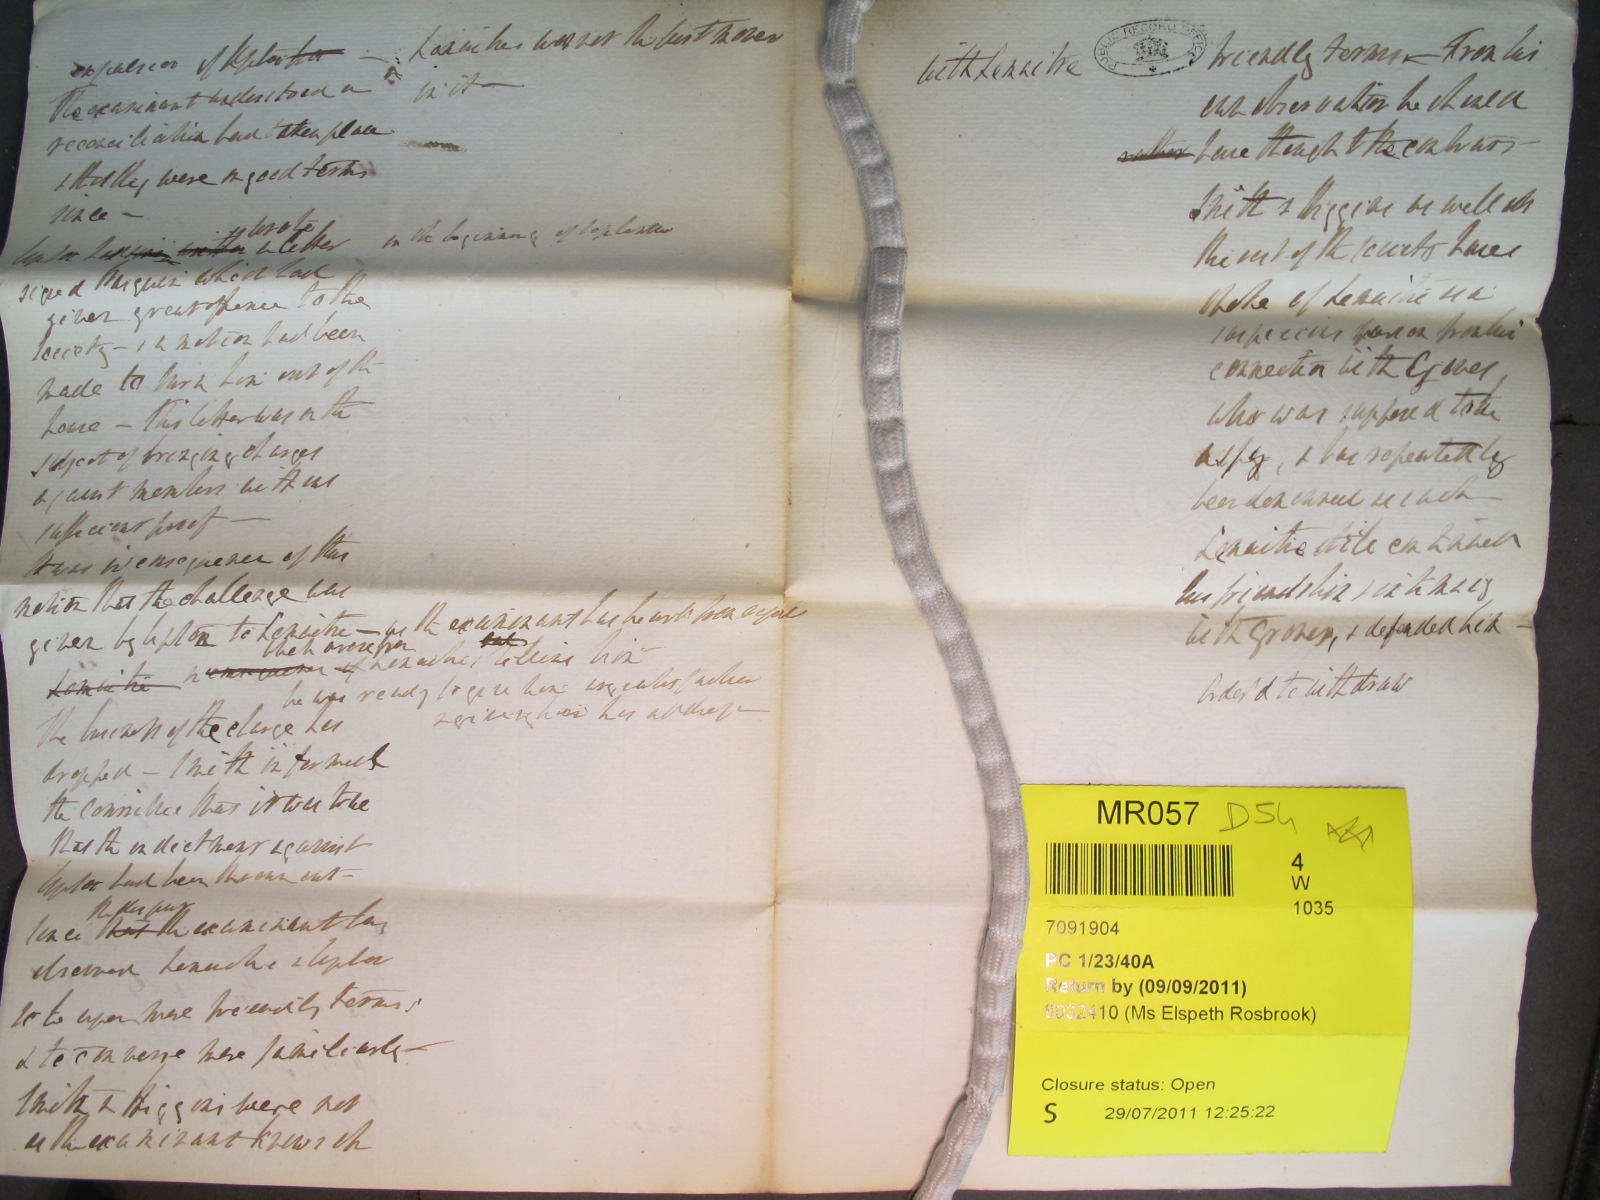 expulsion of Upton for —
the examinant understood a
reconciliation had taken place
& that they were on good terms
since —
Lemaitre was not the first mover
in it —
Upton wrote a letter
in the beginning of September
signed which had
given great offence to the
Society — & a motion had been
made to turn him out of the
house — This letter was on the
subject of bringing charges
against members without
sufficient proof —
It was in consequence of this
motion that the challenge was
given by Upton to Lemaitre — as the examinant has heard from
Lemaitre
Lemaitre's telling him
he was ready to give him
& giving him his address —
the business of the charge was
dropped — Smith informed
the Committee that it was true
that the indictment against
Upton had been thrown out —
since the examinant has
observed Lemaitre & Upton
to be upon more friendly terms,
& to converse more familiarly —
Smith & Higgins were not
as the examinant knows on
with Lemaitre
PUBLIC RECORD OFFICE
friendly terms — From his
own observation he should
rather have thought the contrary —
Smith & Higgins as well as
the rest of the society have
spoke of Lemaitre as a
suspicious person from his
connection with Groves
who was supposed to be
a spy, & has repeatedly
been denounced as such —
Lemaitre still continued
his friendship & intimacy
with Groves, & defended him —
Order'd to withdraw
MR057 D54
4
W
1035
7091904
PC 1/23/40A
Return by (09/09/2011)
8032410 (Ms Elspeth Rosbrook)
Closure status: Open
S 29/07/2011 12:25:22